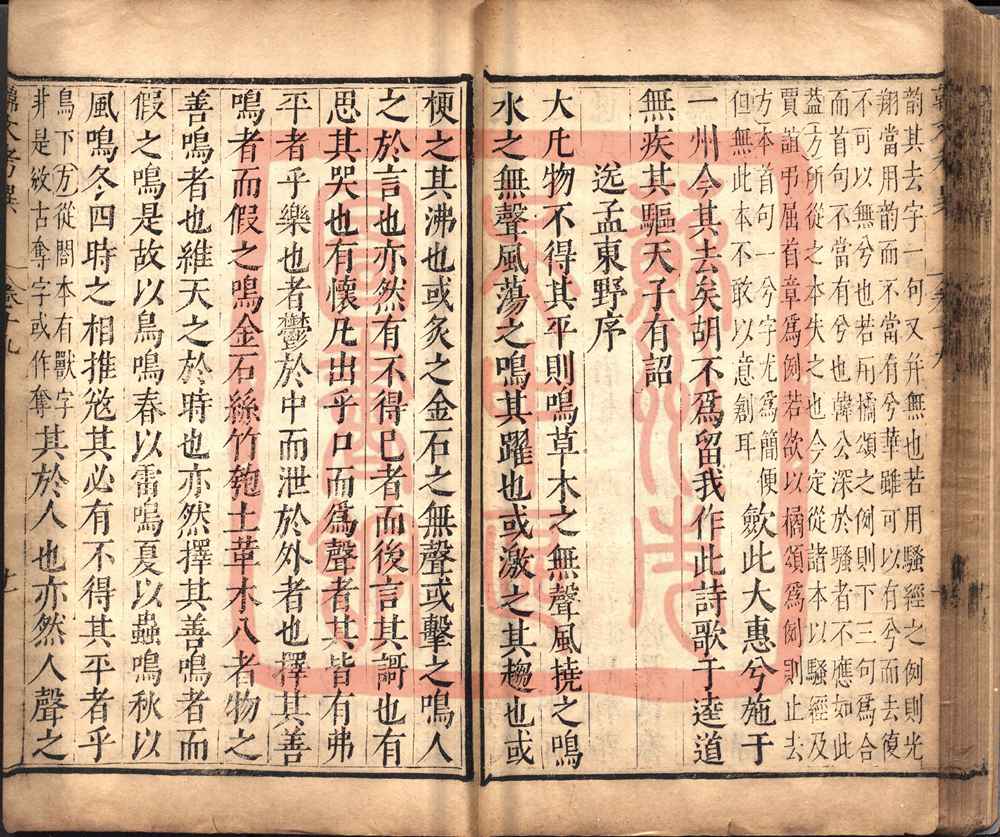 韵其去字一句又并無也若用騷經之例則光
翔當用韵而不當有兮華雖可以有兮而去復
不可以無兮也若用橘頌之例則下三句爲合
而首句不當有兮也韓公深於騷者不應如此
蓋方所從之本失之也今定從諸本以騷經及
賈誼弔屈首章爲例若欲以橘頌爲例則止去
方本首句一兮字尤爲簡便
但無此本不敢以意創耳
歛此大惠兮施于
一州今其去矣胡不爲留我作此詩歌于逵道
無疾其驅天子有詔
送孟東野序
大凡物不得其平則鳴草木之無聲風撓之鳴
水之無聲風蕩之鳴其躍也或激之其趨也或
梗之其沸也或炙之金石之無聲或擊之鳴人
之於言也亦然有不得已者而後言其謌也有
思其哭也有懷凡出乎口而爲聲者其皆有弗
平者乎樂也者鬱於中而泄於外者也擇其善
鳴者而假之鳴金石絲竹匏土革木八者物之
善鳴者也維天之於時也亦然擇其善鳴者而
假之鳴是故以鳥鳴春以雷鳴夏以蟲鳴秋以
風鳴冬四時之相推敓其必有不得其平者乎
鳥下方從閣本有獸字
非是敓古奪字或作奪
其於人也亦然人聲之